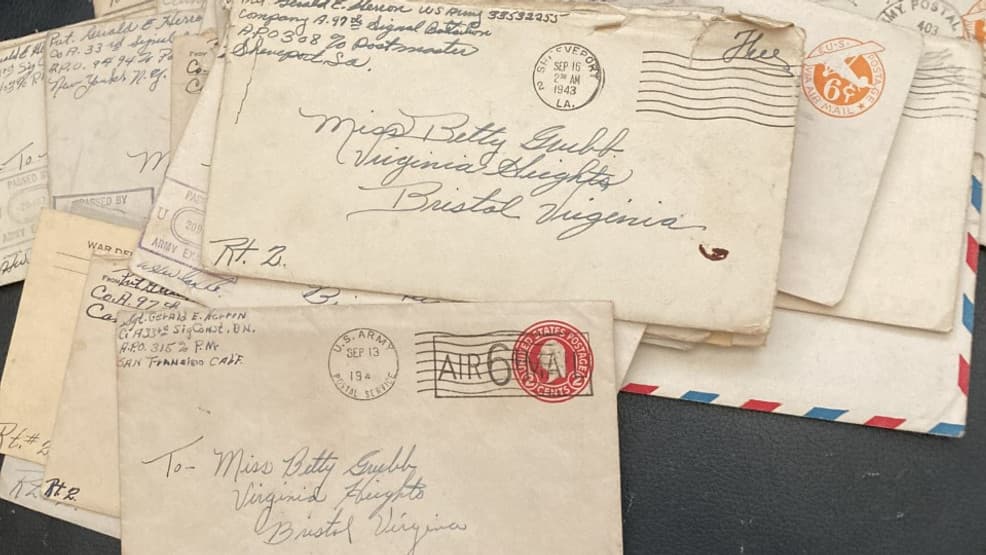 Pvt. Gerald E. Herron US Army 33532255
Company A. 97th Signal Battalion
A.P.O 308 % Postmaster
Shreveport, La.
SHREVEPORT
2
SEP 16
2 30 AM
1943
LA.
Free
Miss Betty Grubb
Virginia Heights
Bristol Virginia
Rt. 2.
U.S. POSTAGE
6¢
VIA AIR MAIL
ARMY POSTAL
403
Pvt. Gerald E. Herro
Co A. 33rd Signal
A.P.O. 9494 %
New York N.Y.
To-
PASSED BY
ARMY EX
PASSED BY
U
ARMY EX
WAR DE
FROM
Co. A. 97th
Rt. #2
Rt 2.
Sgt. Gerald E. Herron
Co A 33rd Sig Const. BN.
A.P.O. 315 % P.M.
San Francisco Calif.
U.S. ARMY
SEP 13
194
POSTAL SERVICE
AIR 6 MA
UNITED STATES POSTAGE
2 CENTS 2
To- Miss Betty Grubb
Virginia Heights
Bristol Virginia